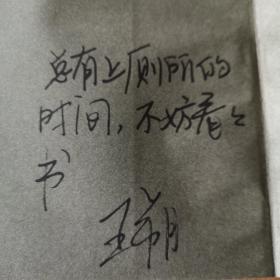 总有上厕所的
时间，不妨看看
书
王朔